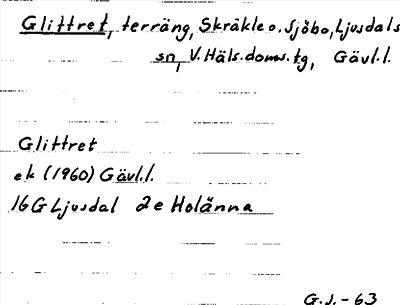 Glittret, terräng, Skräkle o. Sjöbo, Ljusdals
sn, V. Häls. doms. tg, Gävl.l.
Glittret
ek (1960) Gävl.l.
16G Ljusdal 2e Holänna
G.J. - 63